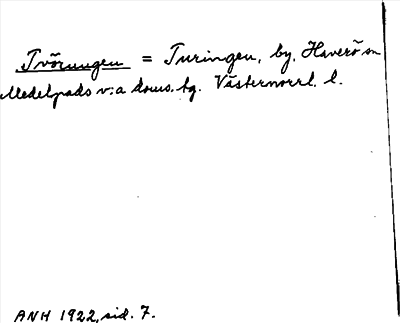 Tvörungen = Turingen, by, Haverö sn
Medelpads v:a doms. tg. Västernorrl. l.
ANH 1922, sid. 7.